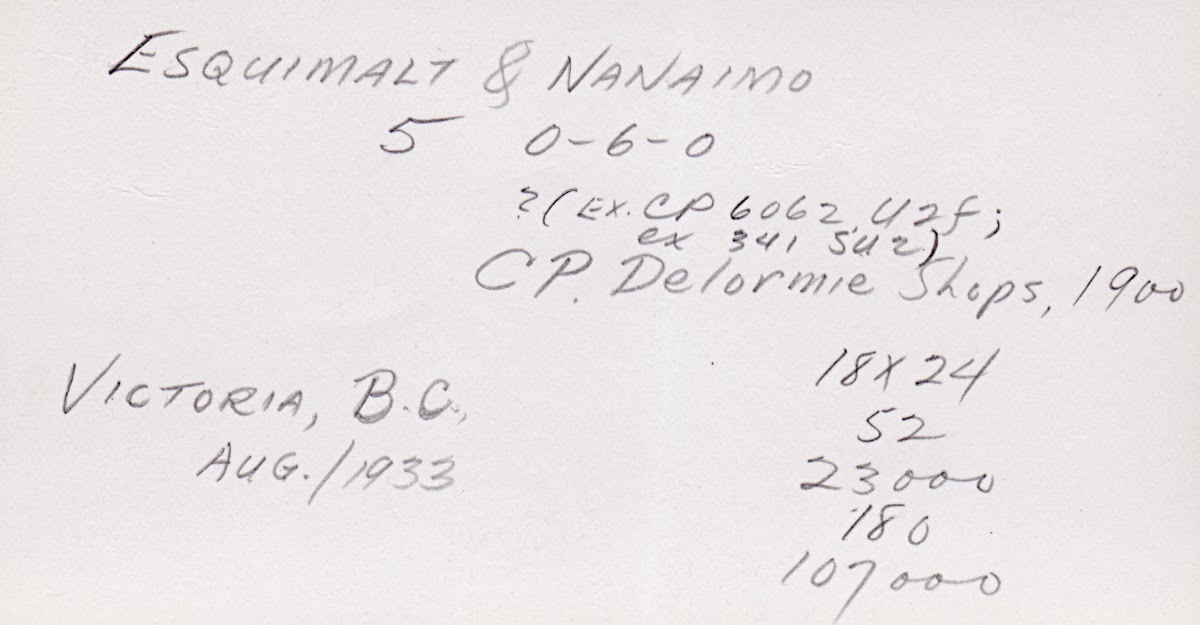 ESQUIMALT & NANAIMO
5 0-6-0
? (EX. CP 6062, U2f;
ex 341 SU2)
CP. Delormie Shops, 1900
18 X 24
VICTORIA, B.C.,
52
AUG./1933
23000
180
107000